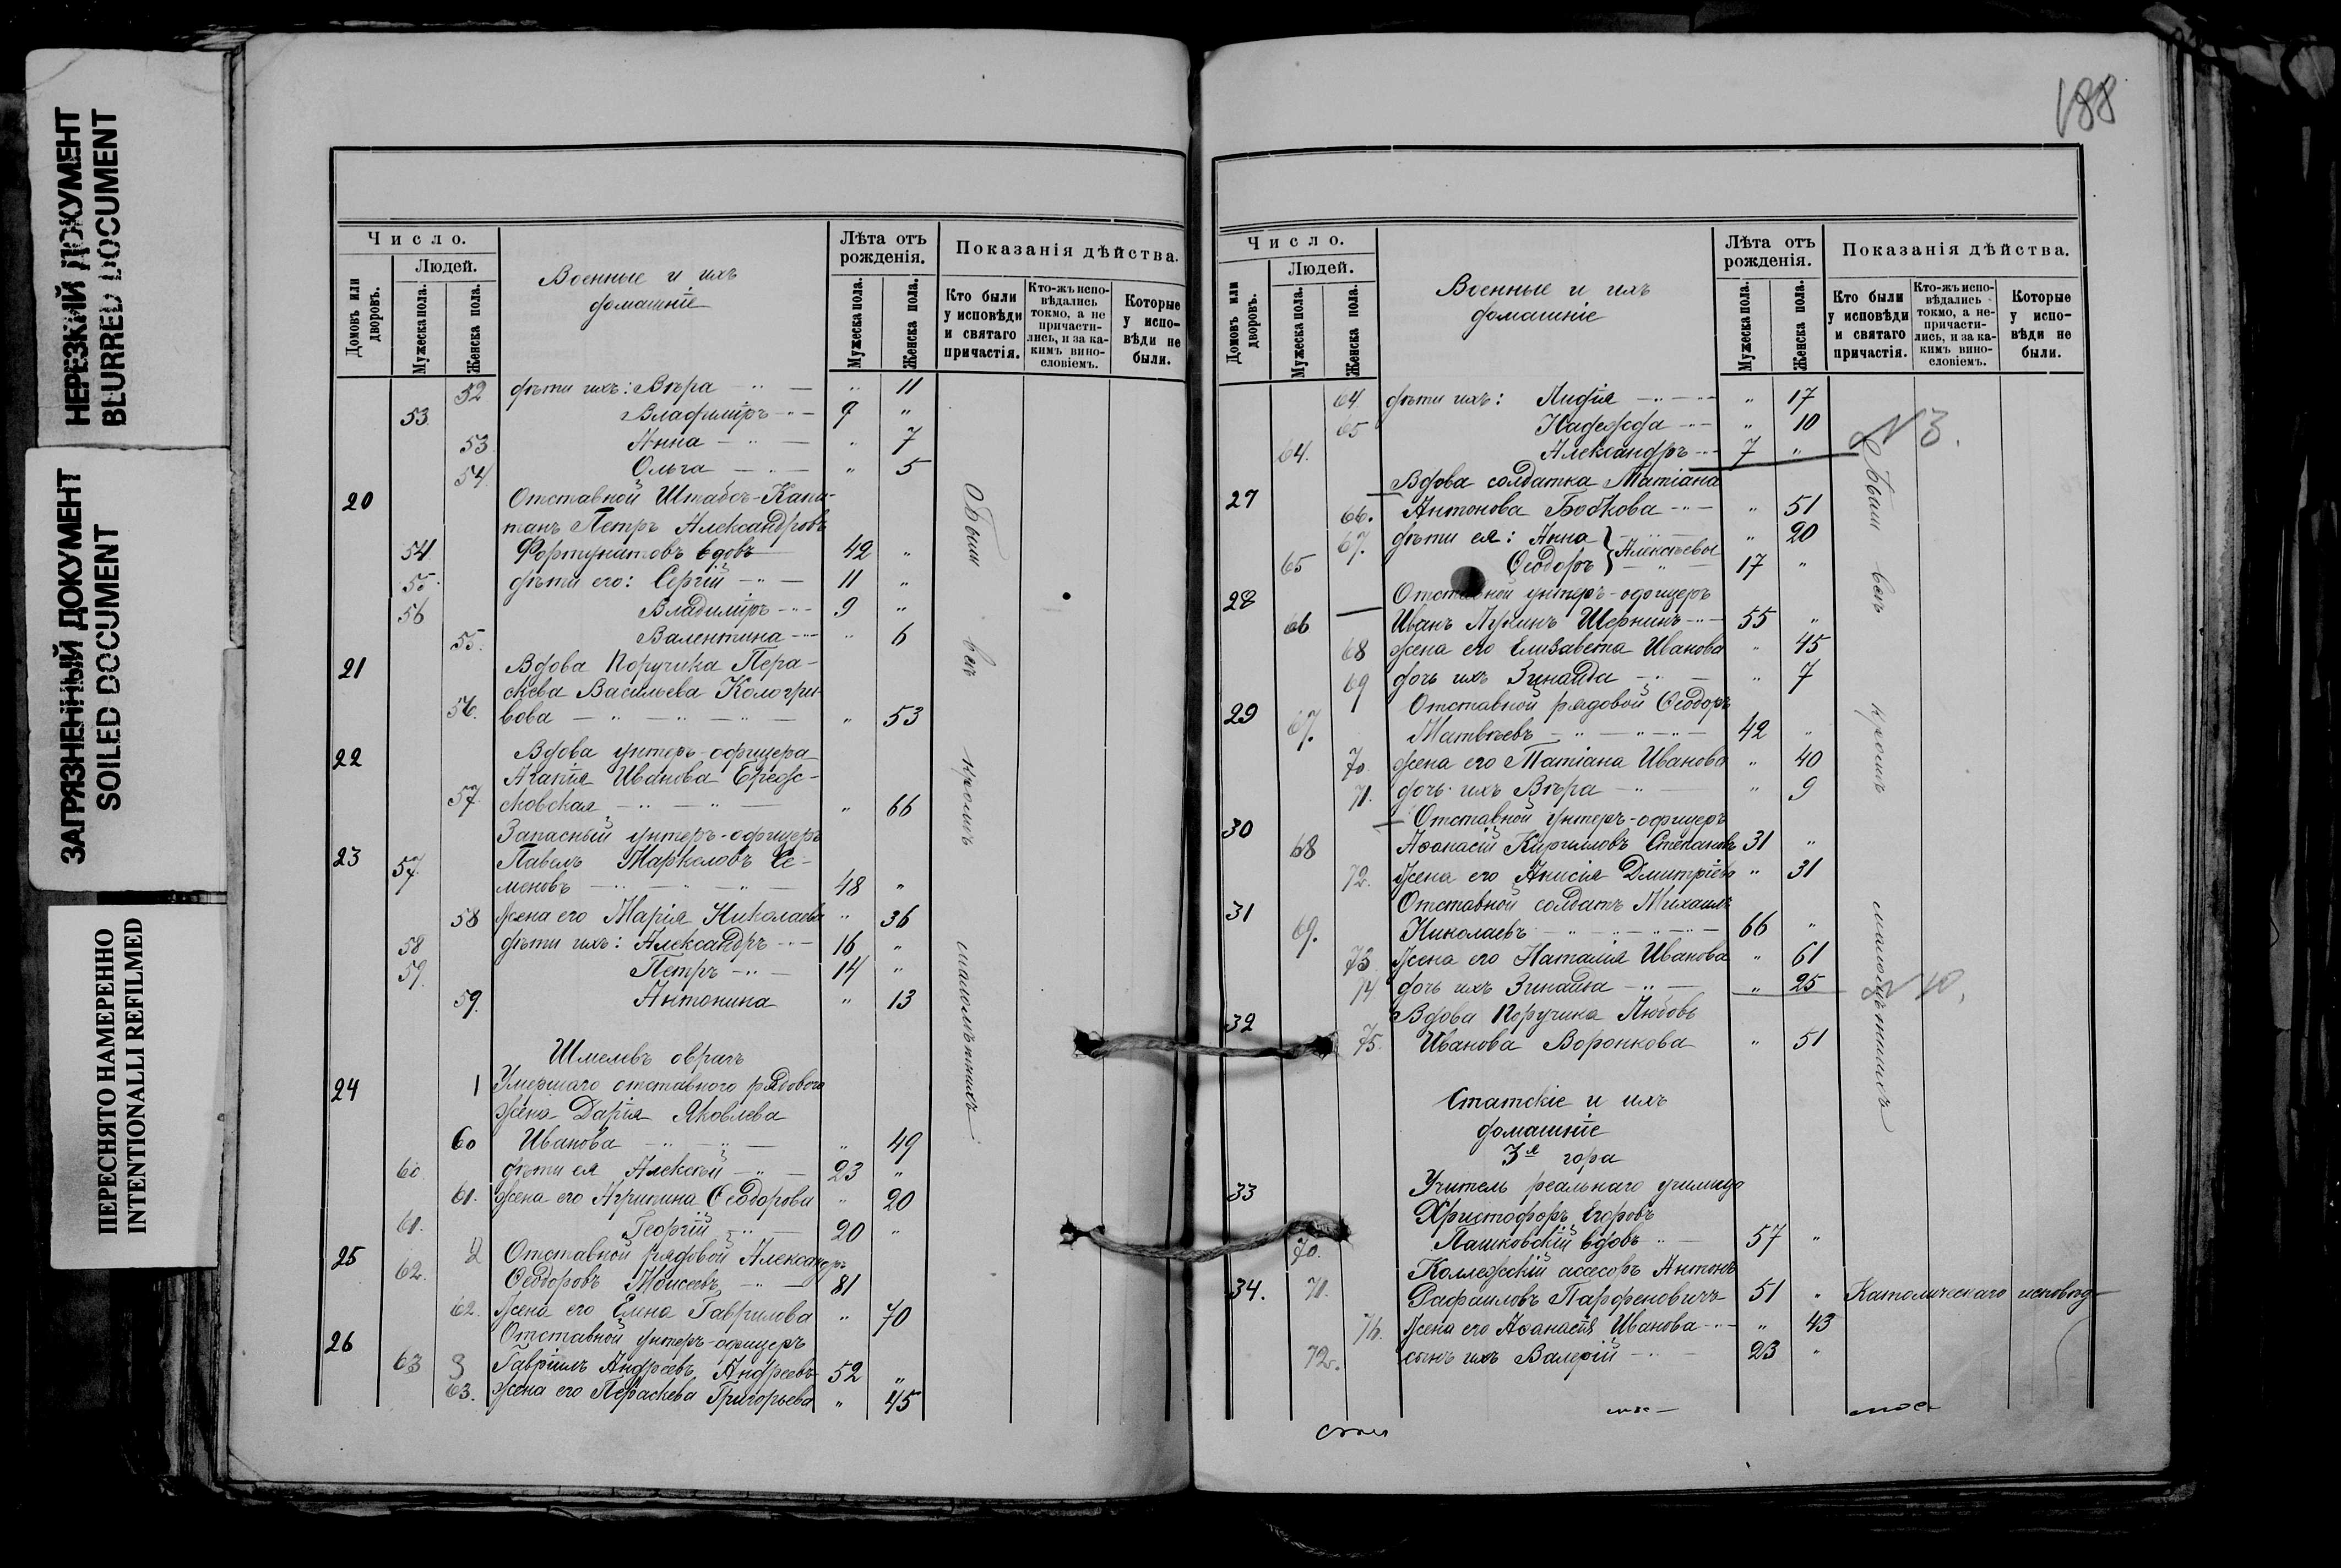 НЕРЕЗКИЙ ДОКУМЕНТ
BLURRED DOCUMENT
ЗАГРЯЗНЕННЫЙ ДОКУМЕНТ
SOILED DOCUMENT
ПЕРЕСНЯТО НАМЕРЕННО
INTENTIONALLI REFILMED
Число.
Людей.
Домовъ или дворовъ.
Мужеска пола.
Женска пола.
Военные и ихъ
домашніе
Лѣта отъ рожденія.
Мужеска пола.
Женска пола.
Показанія дѣйства.
Кто были у исповѣди и святаго причастія.
Кто-жъ исповѣдались токмо, а не причастились, и за какимъ винословіемъ.
Которые у исповѣди не были.
52 дѣти ихъ: Вѣра — " — " 11
53. Владиміръ — " — 9 "
53. Анна — " — " 7
54. Ольга — " — " 5
20 Отставной Штабсъ-Капи-
танъ Петръ Александровъ
54 Фортунатовъ вдовъ 42 "
55. дѣти его: Сергій — " — 11 "
56 Владиміръ — " — 9 "
55. Валентина — " — " 6
21 Вдова Поручика Пера-
скева Васильева Кологри-
56. вова — " — " — " — " 53
22 Вдова унтеръ-офицера
Агапія Иванова
57. сковская — " — " — " 66
Запасный унтеръ-офицеръ
23 57. Павелъ Марколовъ Се-
меновъ — " — " — " — 48 "
58 Жена его Марія Николаева " 36
58 дѣти ихъ: Александръ — " — 16 "
59. Петръ — " — 14 "
59. Антонина " 13
Шмелевъ оврагъ
24 1 Умершаго отставного рядового
жена Дарія Яковлева
60 Иванова — " — " — " 49
60 дѣти ея Алексѣй — " — 23 "
61. Жена его Агрипина Ѳеодорова " 20
61. Георгій — " — 20 "
25 2 Отставной рядовой Александръ
62. Ѳеодоровъ Моисеевъ — " — 81
62. Жена его Елена Гаврилова " 70
26 Отставной унтеръ-офицеръ
63 3 Гавріилъ Андреевъ Андреевъ 52 "
63. Жена его Пераскева Григорьева " 45
Были всѣ кромѣ малолѣтнихъ
188
Число.
Людей.
Домовъ или дворовъ.
Мужеска пола.
Женска пола.
Военные и ихъ
домашніе
Лѣта отъ рожденія.
Мужеска пола.
Женска пола.
Показанія дѣйства.
Кто были у исповѣди и святаго причастія.
Кто-жъ исповѣдались токмо, а непричастились, и за какимъ винословіемъ.
Которые у исповѣди не были.
64 дѣти ихъ: Лидія — " — " 17
65 Надежда — " — " 10
64. Александръ — " — 7 "
N 3.
27 Вдова солдатка Татіана
66. Антонова Бобкова — " — " 51
67. дѣти ея: Анна } Алексѣевы " 20
65 Ѳеодоръ 17 "
28 Отставной унтеръ-офицеръ
66 Иванъ Лукинъ Шернинъ — " — 55 "
68 жена его Елизавета Иванова " 45
69 дочь ихъ Зинаида — " — " 7
29 Отставной рядовой Ѳеодоръ
67. Матвѣевъ — " — " — " — 42 "
70 жена его Татіана Иванова " 40
71. дочь ихъ Вѣра — " — " 9
30 Отставной унтеръ-офицеръ
68 Аѳанасій Кирилловъ Степановъ 31 "
72. Жена его Анисія Дмитріева " 31
31 Отставной солдатъ Михаилъ
69. Николаевъ — " — " — " — 66 "
73. Жена его Наталія Иванова " 61
74 дочь ихъ Зинаида — " — " 25
N 10.
32 Вдова Поручика Любовь
75. Иванова Воронкова " 51
Были всѣ кромѣ малолѣтнихъ
Статскіе и ихъ
домашніе
3я гора
33 Учитель реальнаго училища
Христофоръ Егоровъ
70. Пашковскій вдовъ " — 57 "
Коллежскій ассесоръ Антонъ
34. 71. Рафаиловъ Парфеновичъ 51 " Католическаго исповѣд-
76. Жена его Аѳанасія Иванова — " — " 43
72. сынъ ихъ Валерій — " — 23 "